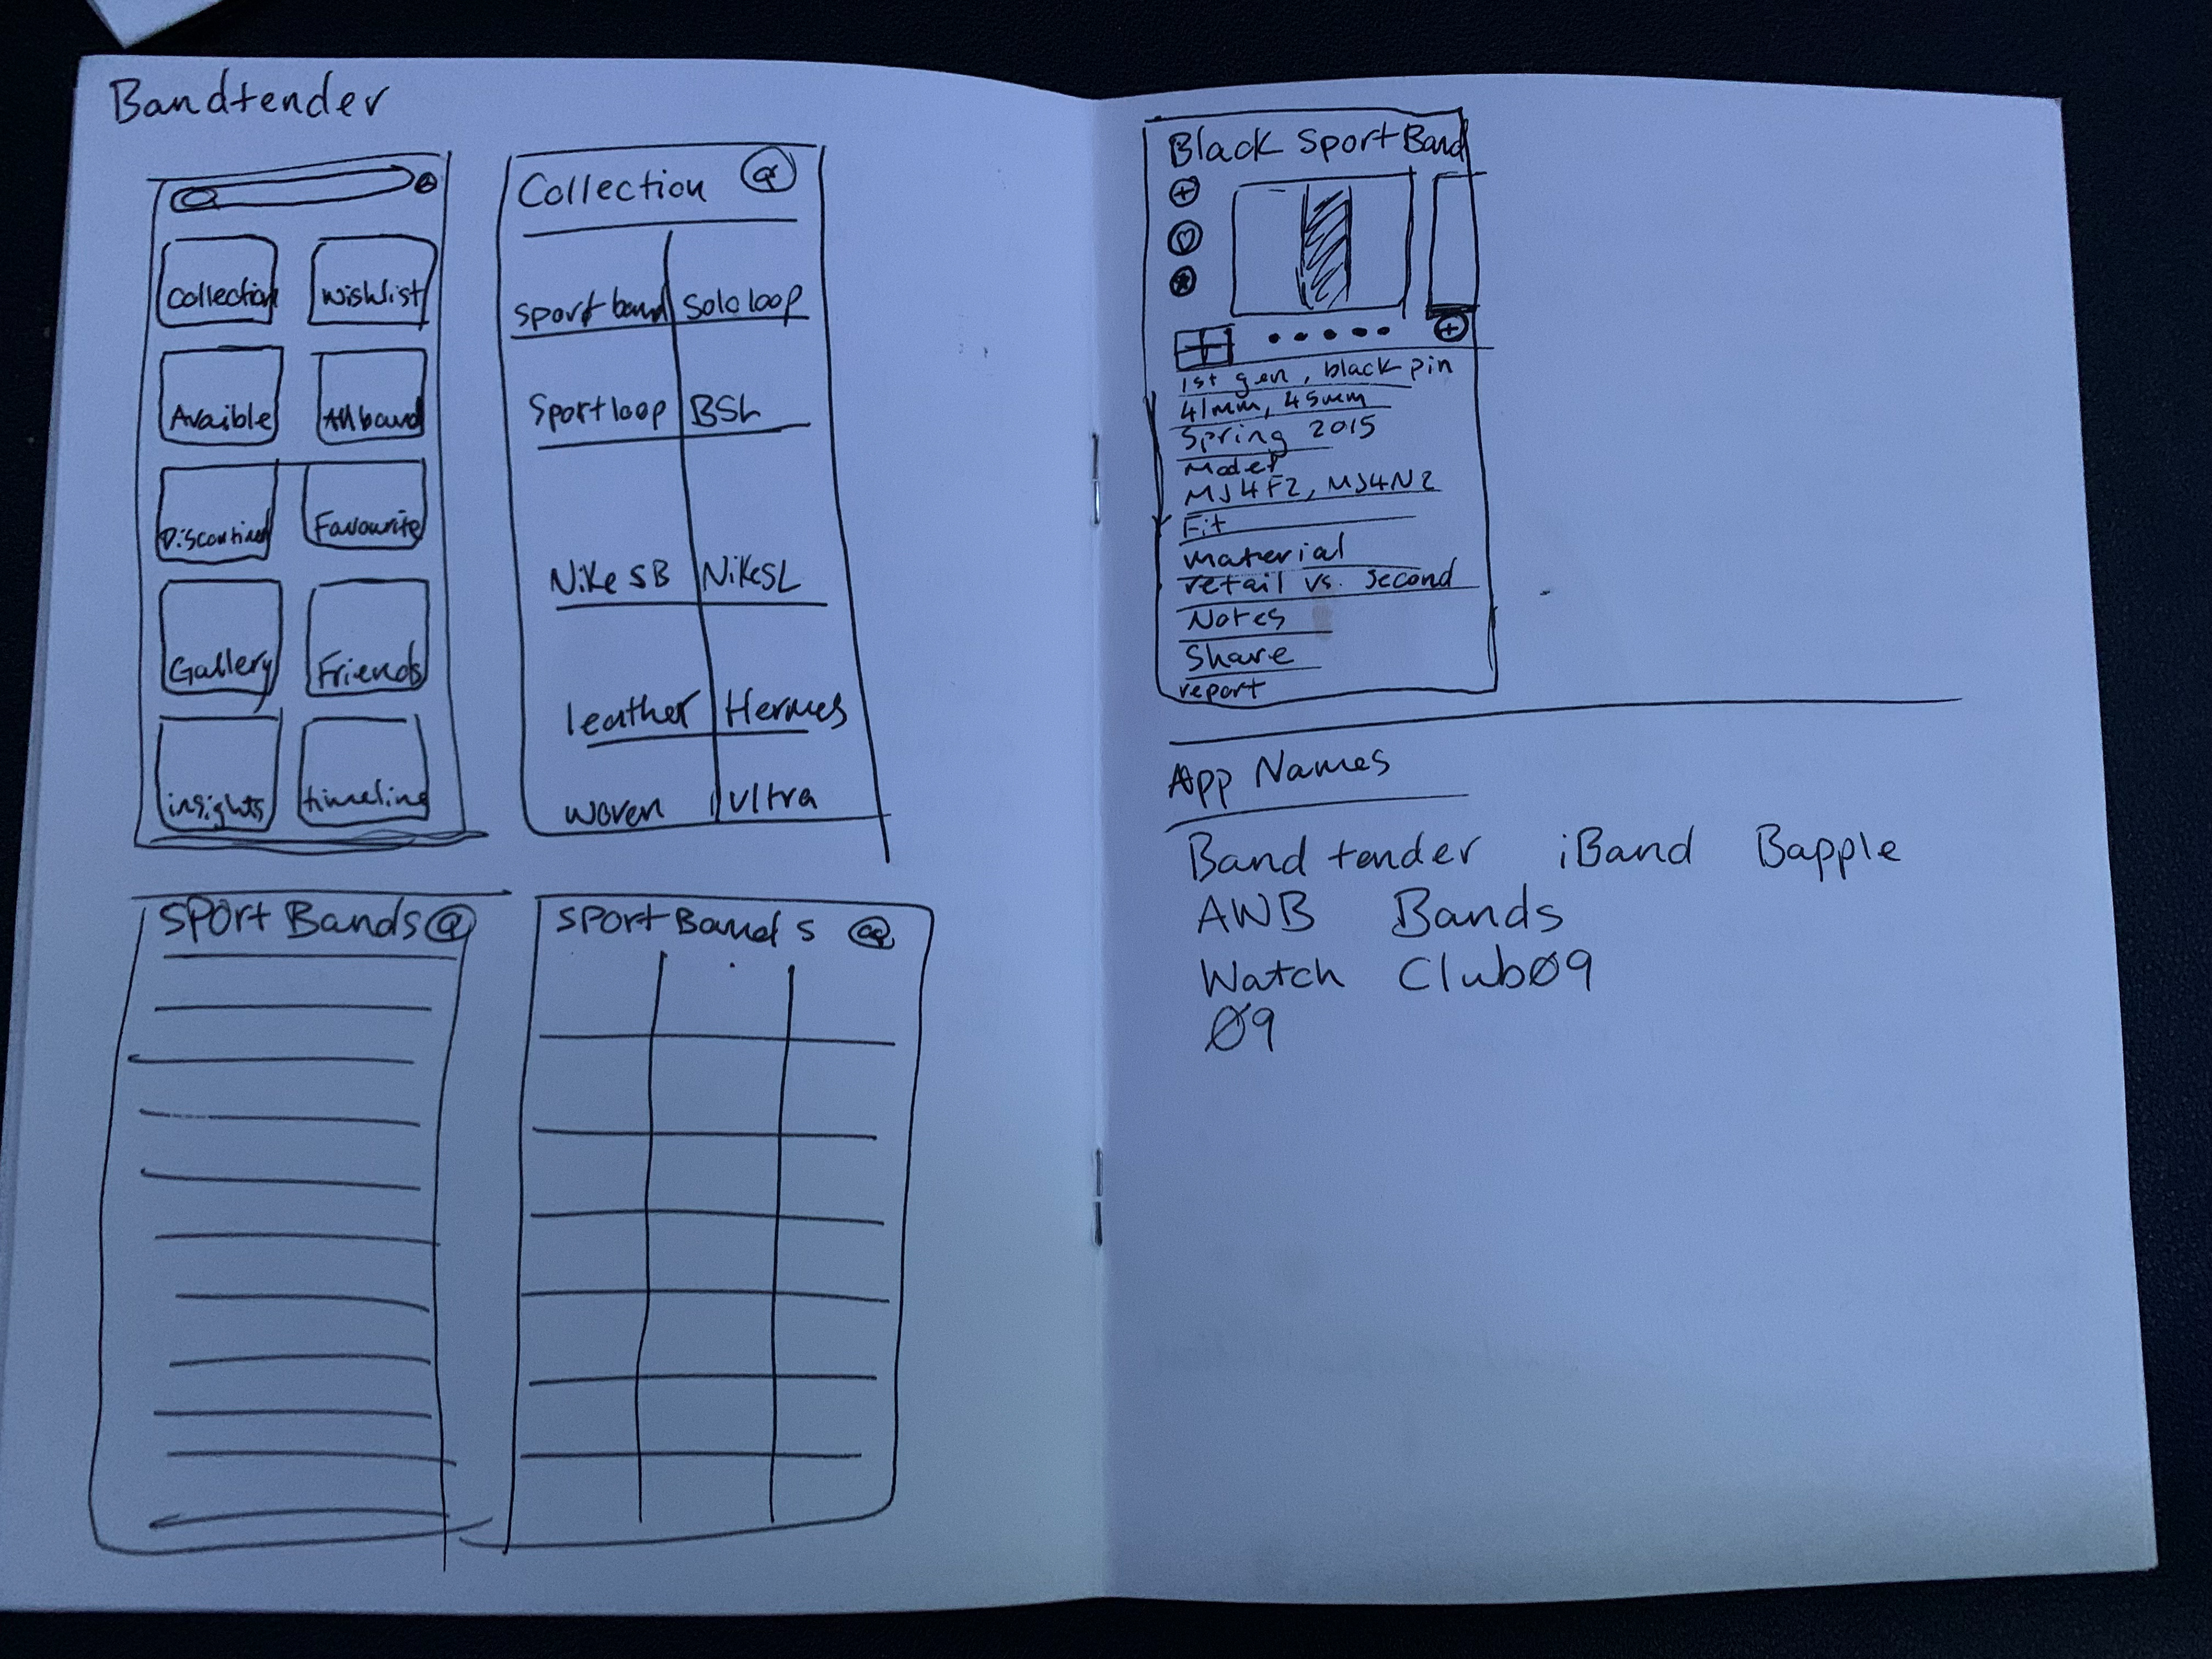 Bandtender
Collection
Wishlist
Avaible
All band
Discontined
Favourite
Gallery
Friends
insights
timeline
Collection
sport band
Solo loop
Sport loop
BSL
Nike SB
Nike SL
leather
Hermes
woven
Ultra
SPort Bands
SPort Bands
Black Sport Band
1st gen, black pin
41mm, 45mm
Spring 2015
Model
MJ4F2, MJ4N2
Fit
material
retail vs. second
Notes
Share
report
App Names
Band tender iBand Bapple
AWB Bands
Watch Club09
09